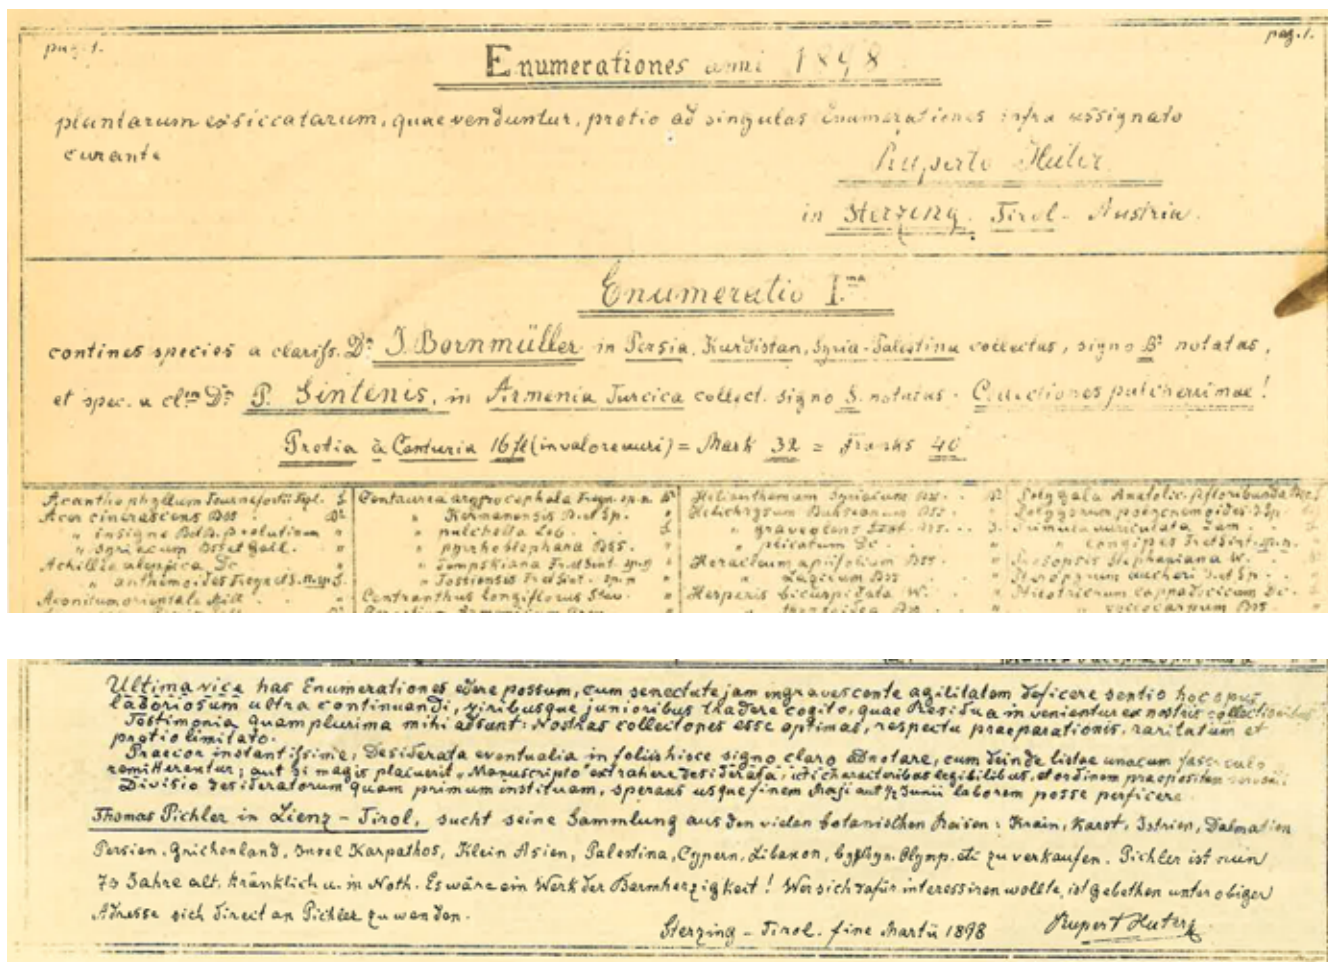 pag. 1.
pag. 1.
Enumerationes anni 1898
plantarum exsiccatarum, quae venduntur, pretio ad singulas Enumerationes infra assignato
curante
Ruperto Huter
in Sterzing. Tirol - Austria.
Enumeratio I.ma
contines species a clariss. Dre J. Bornmüller in Persia, Kurdistan, Syria-Palestina collectas, signo B. notatas,
et spec. a cl.mo Dre P. Sintenis, in Armenia Turcica collect. signo S. notatas - Collectiones pulcherrimae!
Pretia à Centuria 16 fl (in valore auri) = Mark 32 = Franks 40
Acanthophyllum Tournefortii
Acer cinerascens Bss
" insigne
" syriacum Bss et Gaill.
Achillea aleppica Dc
" anthemoides Freyn et S. n. sp. S.
Aconitum orientale Mill
Centaurea argyrocephala Freyn. sp. n.
" Kermanensis B. et Sp.
" pulchella Led.
" pyrrhoblephara Bss.
" Tempskiana Fr. et Sint. sp. n
" Tossiensis Fr. et Sint. sp. n
Centranthus longiflorus Stev.
Helianthemum syriacum
Helichrysum Buhseanum Bss
" graveolens
" plicatum Dc.
Heracleum apiifolium Bss.
" Lasicum Bss
Hesperis bicuspidata W.
" thyrsoidea Bss
Polygala Anatolic.
Polygonum polycnemoides J. Sp.
Primula auriculata Lam.
" longipes Fr. et Sint. sp. n.
Prosopis Stephaniana W.
Pteropyrum aucheri J. et Sp.
Ptilotrichum cappadocicum
Ultima vice has Enumerationes edere possum, cum senectute jam ingravescente agilitatem deficere sentio hoc opus
laboriosum ultra continuandi, viribusque junioribus tradere cogito, quae Residua invenientur ex nostris collectionibus
Testimonia quam plurima mihi adsunt: Nostras collectiones esse optimas, respectu praeparationis, raritatum et
pretio limitato.
Praecor instantissime, Desiderata eventualia in foliis hisce signo claro adnotare, cum deinde listae unacum fasciculo
remitterentur; aut si magis placuerit, Manuscripto extrahere desiderata, characteribus legibilibus, et ordinem praepositum
Divisio desideratorum quam primum instituam, sperans usque finem Maji aut ½ Junii laborem posse perficere.
Thomas Pichler in Lienz - Tirol, sucht seine Sammlung aus den vielen botanischen Reisen: Krain, Karst, Istrien, Dalmatien
Persien, Grichenland, Insel Karpathos, Klein Asien, Palestina, Cypern, Libanon, Olymp. etc zu verkaufen. Pichler ist nun
73 Jahre alt. Kränklich u. in Noth. Es wäre ein Werk der Barmherzigkeit! Wer sich dafür interessiren wollte, ist gebethen unter obiger
Adresse sich direct an Pichler zu wenden.
Sterzing - Tirol. fine Martii 1898 Rupert Huter